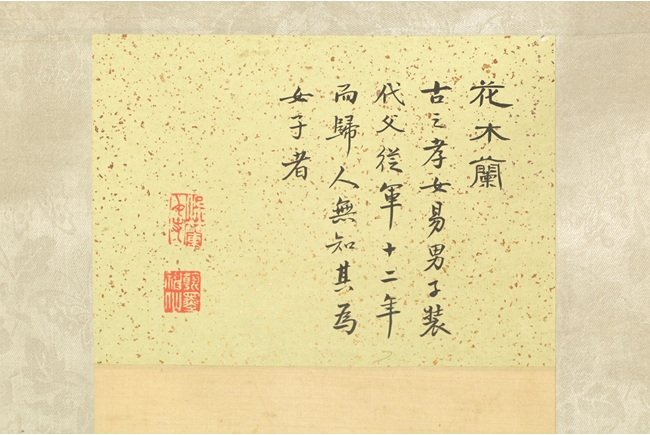 花木蘭
古之孝女易男子裝
代父從軍十二年
而歸人無知其為
女子者